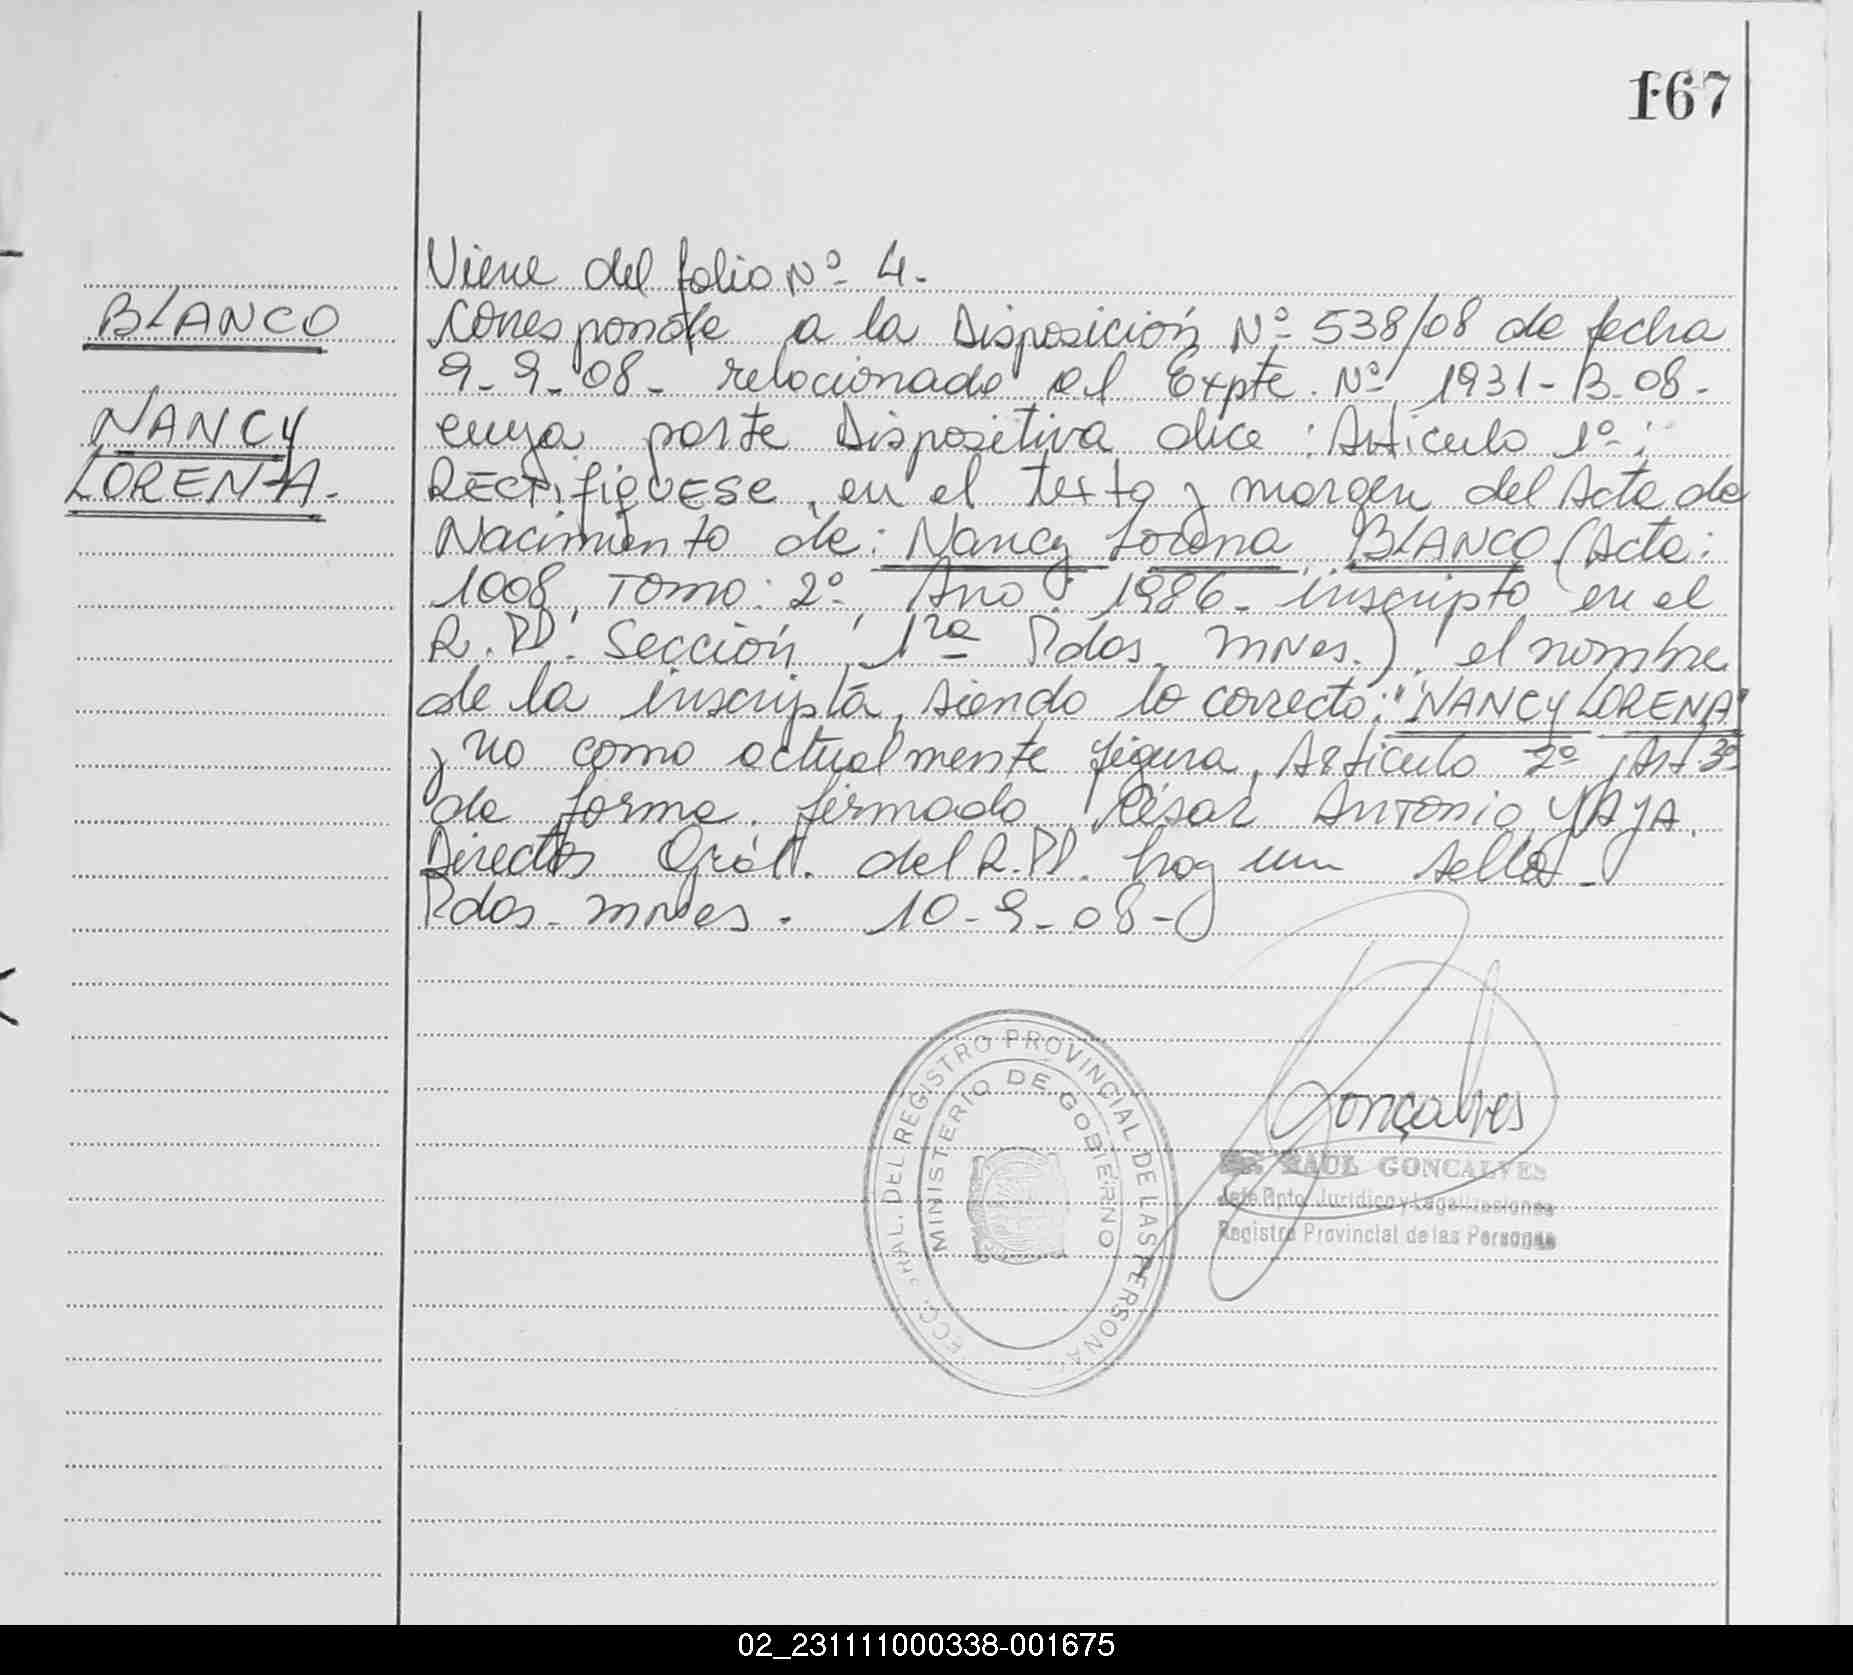 167
Viene del folio Nº 4.
BLANCO
Corresponde a la Disposición Nº 538/08 de fecha
9-9-08- relacionado al Expte. Nº 1931-B-08-
NANCY
cuya parte Dispositiva dice: Artículo 1º:
LORENA.
RECTIFIQUESE, en el texto y margen del Acta de
Nacimiento de: Nancy Lorena BLANCO (Acta:
1008, Tomo: 2º, Año: 1986- inscripto en el
R.PP. Sección 1ra Pdas. Mnes.), el nombre
de la inscripta, siendo lo correcto: "NANCY LORENA"
y no como actualmente figura, Artículo 2º, Art 3º
de forma. firmado César Antonio YAJA.
Director Gral. del R.PP. hay un sello-
Pdas- Mnes. 10-9-08-
DEL REGISTRO PROVINCIAL DE LAS PERSONAS
MINISTERIO DE GOBIERNO
Gonçalves
RAUL GONCALVES
Jefe Dpto. Jurídico y Legalizaciones
Registro Provincial de las Personas
02_231111000338-001675